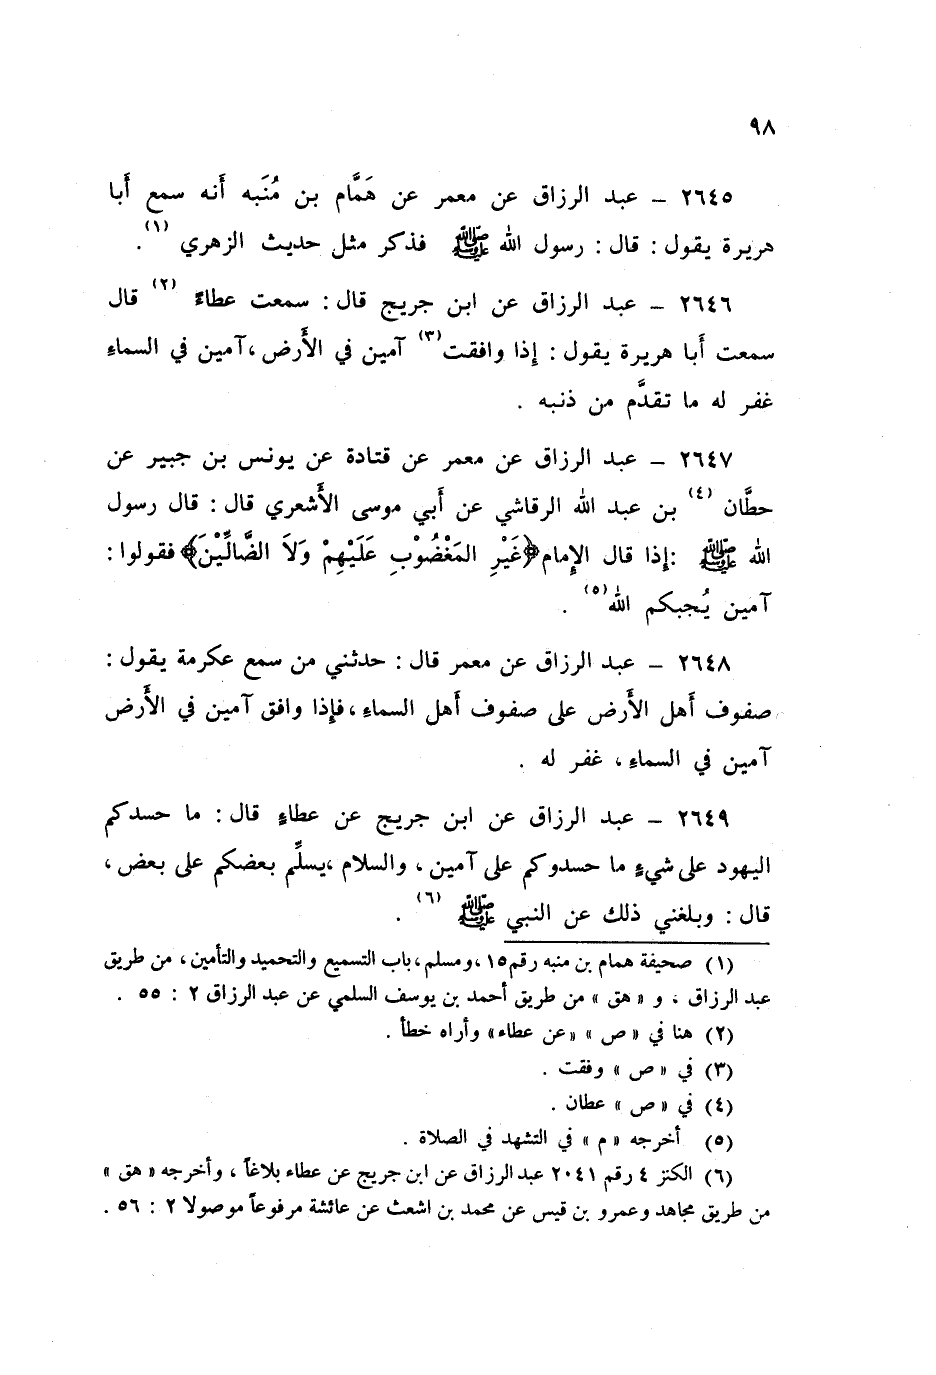 ٩٨
٢٦٤٥ – عبد الرزاق عن معمر عن هَمَّام بن مُنَبه أَنه سمع أَبا
هريرة يقول : قال : رسول الله ﷺ فذكر مثل حديث الزهري (١).
٢٦٤٦ – عبد الرزاق عن ابن جريج قال : سمعت عطاءً (٢) قال
سمعت أَبا هريرة يقول : إِذا وافقت(٣) آمين في الأَرض ،آمين في السماءِ
غفر له ما تقدَّم من ذنبه .
٢٦٤٧ – عبد الرزاق عن معمر عن قتادة عن يونس بن جبير عن
حطَّان (٤) بن عبد الله الرقاشي عن أَبي موسى الأَشعري قال : قال رسول
الله ﷺ :إِذا قال الإِمام﴿غَيْرِ المَغْضُوْبِ عَلَيْهِمْ وَلاَ الضَّالِّيْنَ﴾فقولوا :
آمين يُجبكم الله(٥) .
٢٦٤٨ – عبد الرزاق عن معمر قال : حدثني من سمع عكرمة يقول :
صفوف أَهل الأَرض على صفوف أَهل السماءِ ،فإِذا وافق آمين في الأَرض
آمين في السماءِ ، غفر له .
٢٦٤٩ – عبد الرزاق عن ابن جريج عن عطاءٍ قال : ما حسدكم
اليهود على شيءٍ ما حسدوكم على آمين ، والسلام ،يسلِّم بعضكم على بعض ،
قال : وبلغني ذلك عن النبي ﷺ (٦) .
(١) صحيفة همام بن منبه رقم١٥ ،ومسلم ،باب التسميع والتحميد والتأمين ، من طريق
عبد الرزاق ، و « هق » من طريق أحمد بن يوسف السلمي عن عبد الرزاق ٢ : ٥٥ .
(٢) هنا في « ص » «عن عطاء» وأراه خطأ .
(٣) في « ص » وفقت .
(٤) في « ص » عطان .
(٥) أخرجه « م » في التشهد في الصلاة .
(٦) الكنز ٤ رقم ٢٠٤١ عبد الرزاق عن ابن جريج عن عطاء بلاغاً ، وأخرجه « هق »
من طريق مجاهد وعمرو بن قيس عن محمد بن اشعث عن عائشة مرفوعاً موصولا ٢ : ٥٦ .